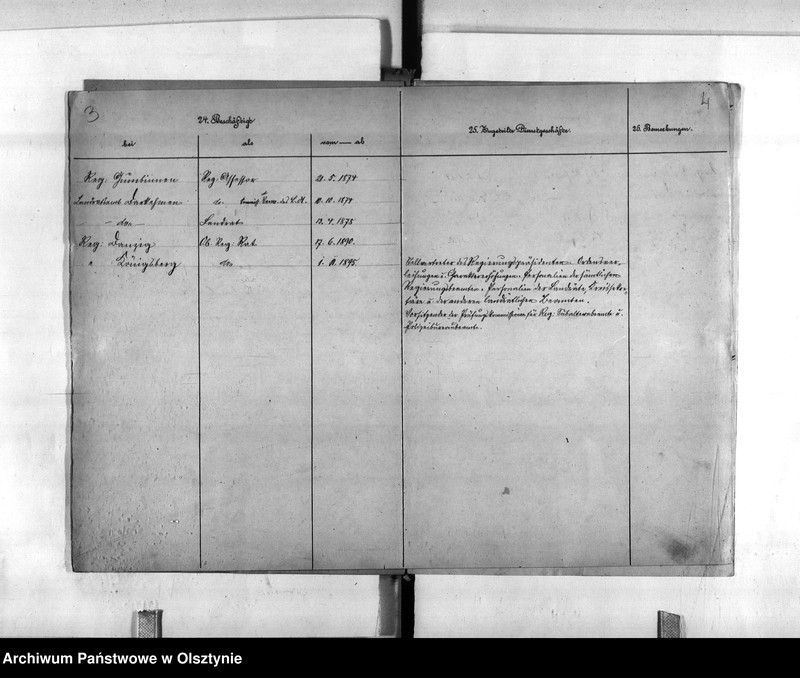 3
4
24. Beschäftigt
25. Zugeteilte Dienstgeschäfte.
26. Bemerkungen.
bei als vom — ab
Reg. Gumbinnen Reg. Assessor 21. 5. 1874
Landratsamt Darkehmen do. 10. 10. 1874
— do. Landrat 12. 4. 1875
Reg. Danzig Ob. Reg. Rat 17. 6. 1890.
" Königsberg do. 1. 11. 1895.
Stellvertreter des Regierungspräsidenten. Ordensver-
leihungen u. Charaktererhöhungen. Personalien der sämtlichen
Regierungsbeamten. Personalien der Landräte, Kreissekre-
täre u. der anderen landrätlichen Beamten.
Vorsitzender der Prüfungskommission für Reg. Subalternbeamte u.
Polizeibüreaubeamte.
Archiwum Państwowe w Olsztynie